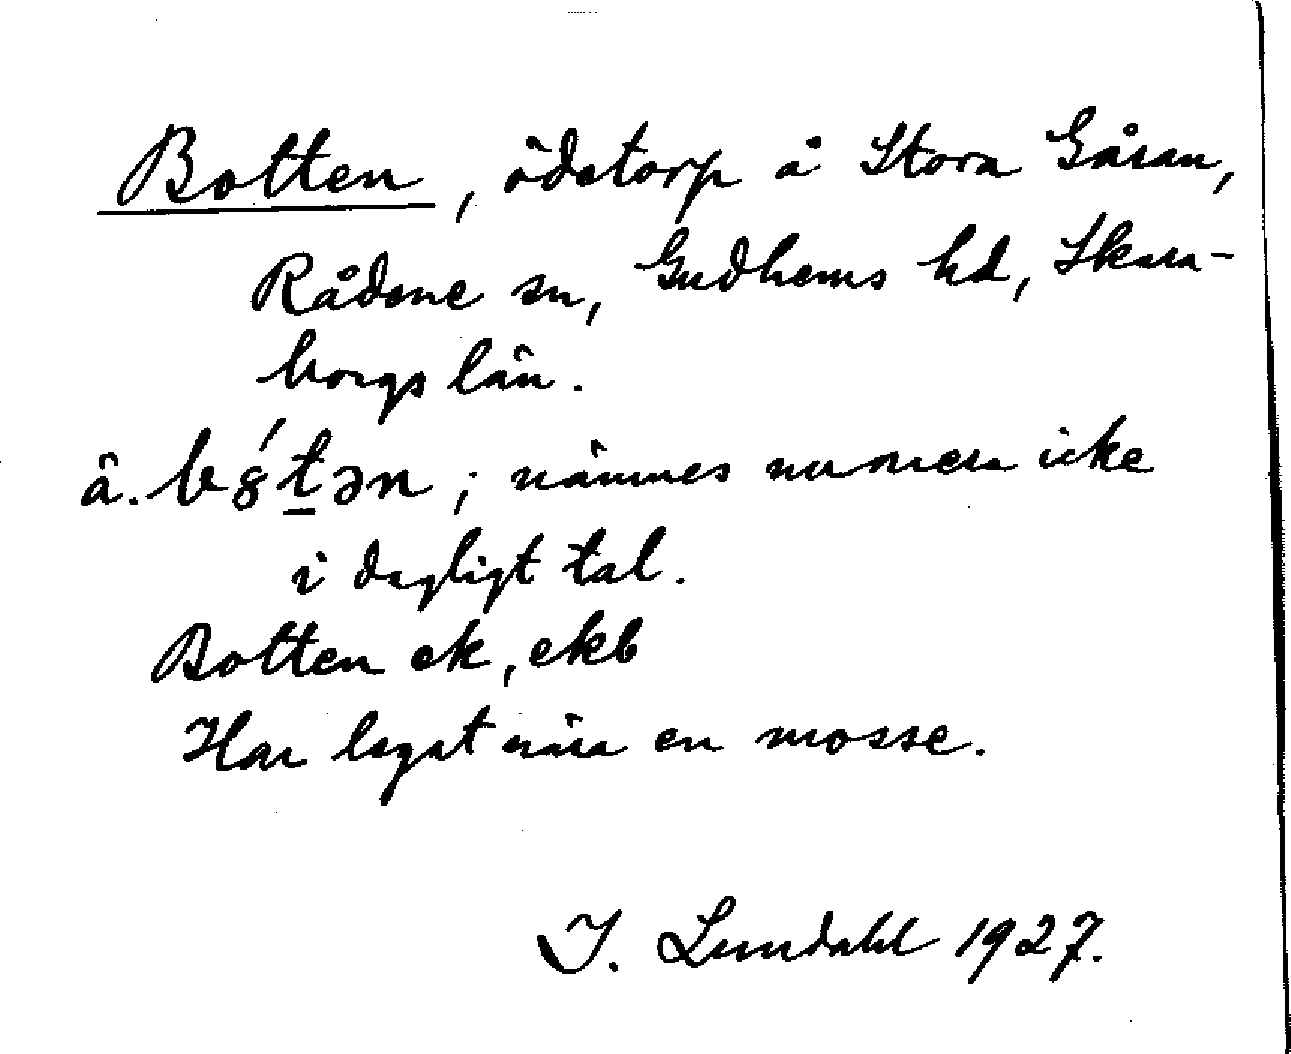 Botten, ödetorp å Stora Gåran,
Rådene sn, Gudhems hd, Skara-
borgs län.
ä. b8́t̲ən; nämnes numera icke
i dagligt tal.
Botten ek, ekb
Har legat nära en mosse.
I. Lundahl 1927.